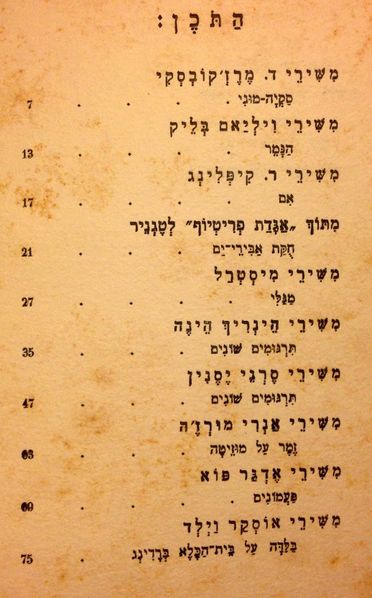 הַתֹּכֶן:
מִשִּׁירֵי ד. מֶרֶז'קוֹבְסְקִי
סַקְיָה-מוּנִי . . . . . 7
מִשִּׁירֵי וִילְיַאם בְּלֵיק
הַנָּמֵר . . . . . 13
מִשִּׁירֵי ר. קִיפְּלִינְג
אִם . . . . . 17
מִתּוֹךְ „אַגָּדַת פְרִיטְיוֹף” לְטֶגְנֵיר
חֻקַּת אַבִּירֵי־יָם . . . . 21
מִשִּׁירֵי מִיסְטְרַל
מַגַּלִּי . . . . . 27
מִשִּׁירֵי הַיְנְרִיךְ הַיְנֶה
תִּרְגּוּמִים שׁוֹנִים . . . . 35
מִשִּׁירֵי סֶרְגֵי יֶסֶנִין
תִּרְגּוּמִים שׁוֹנִים . . . . 47
מִשִּׁירֵי אַנְרִי מוּרְזֶ'ה
זֶמֶר עַל מוּזֵיטָה . . . . 63
מִשִּׁירֵי אֶדְגַּר פּוֹא
פַּעֲמוֹנִים . . . . . 69
מִשִּׁירֵי אוֹסְקַר וַיְלְד
בַּלָּדָה עַל בֵּית-הַכֶּלֶא בְּרֶדִינְג . . 75